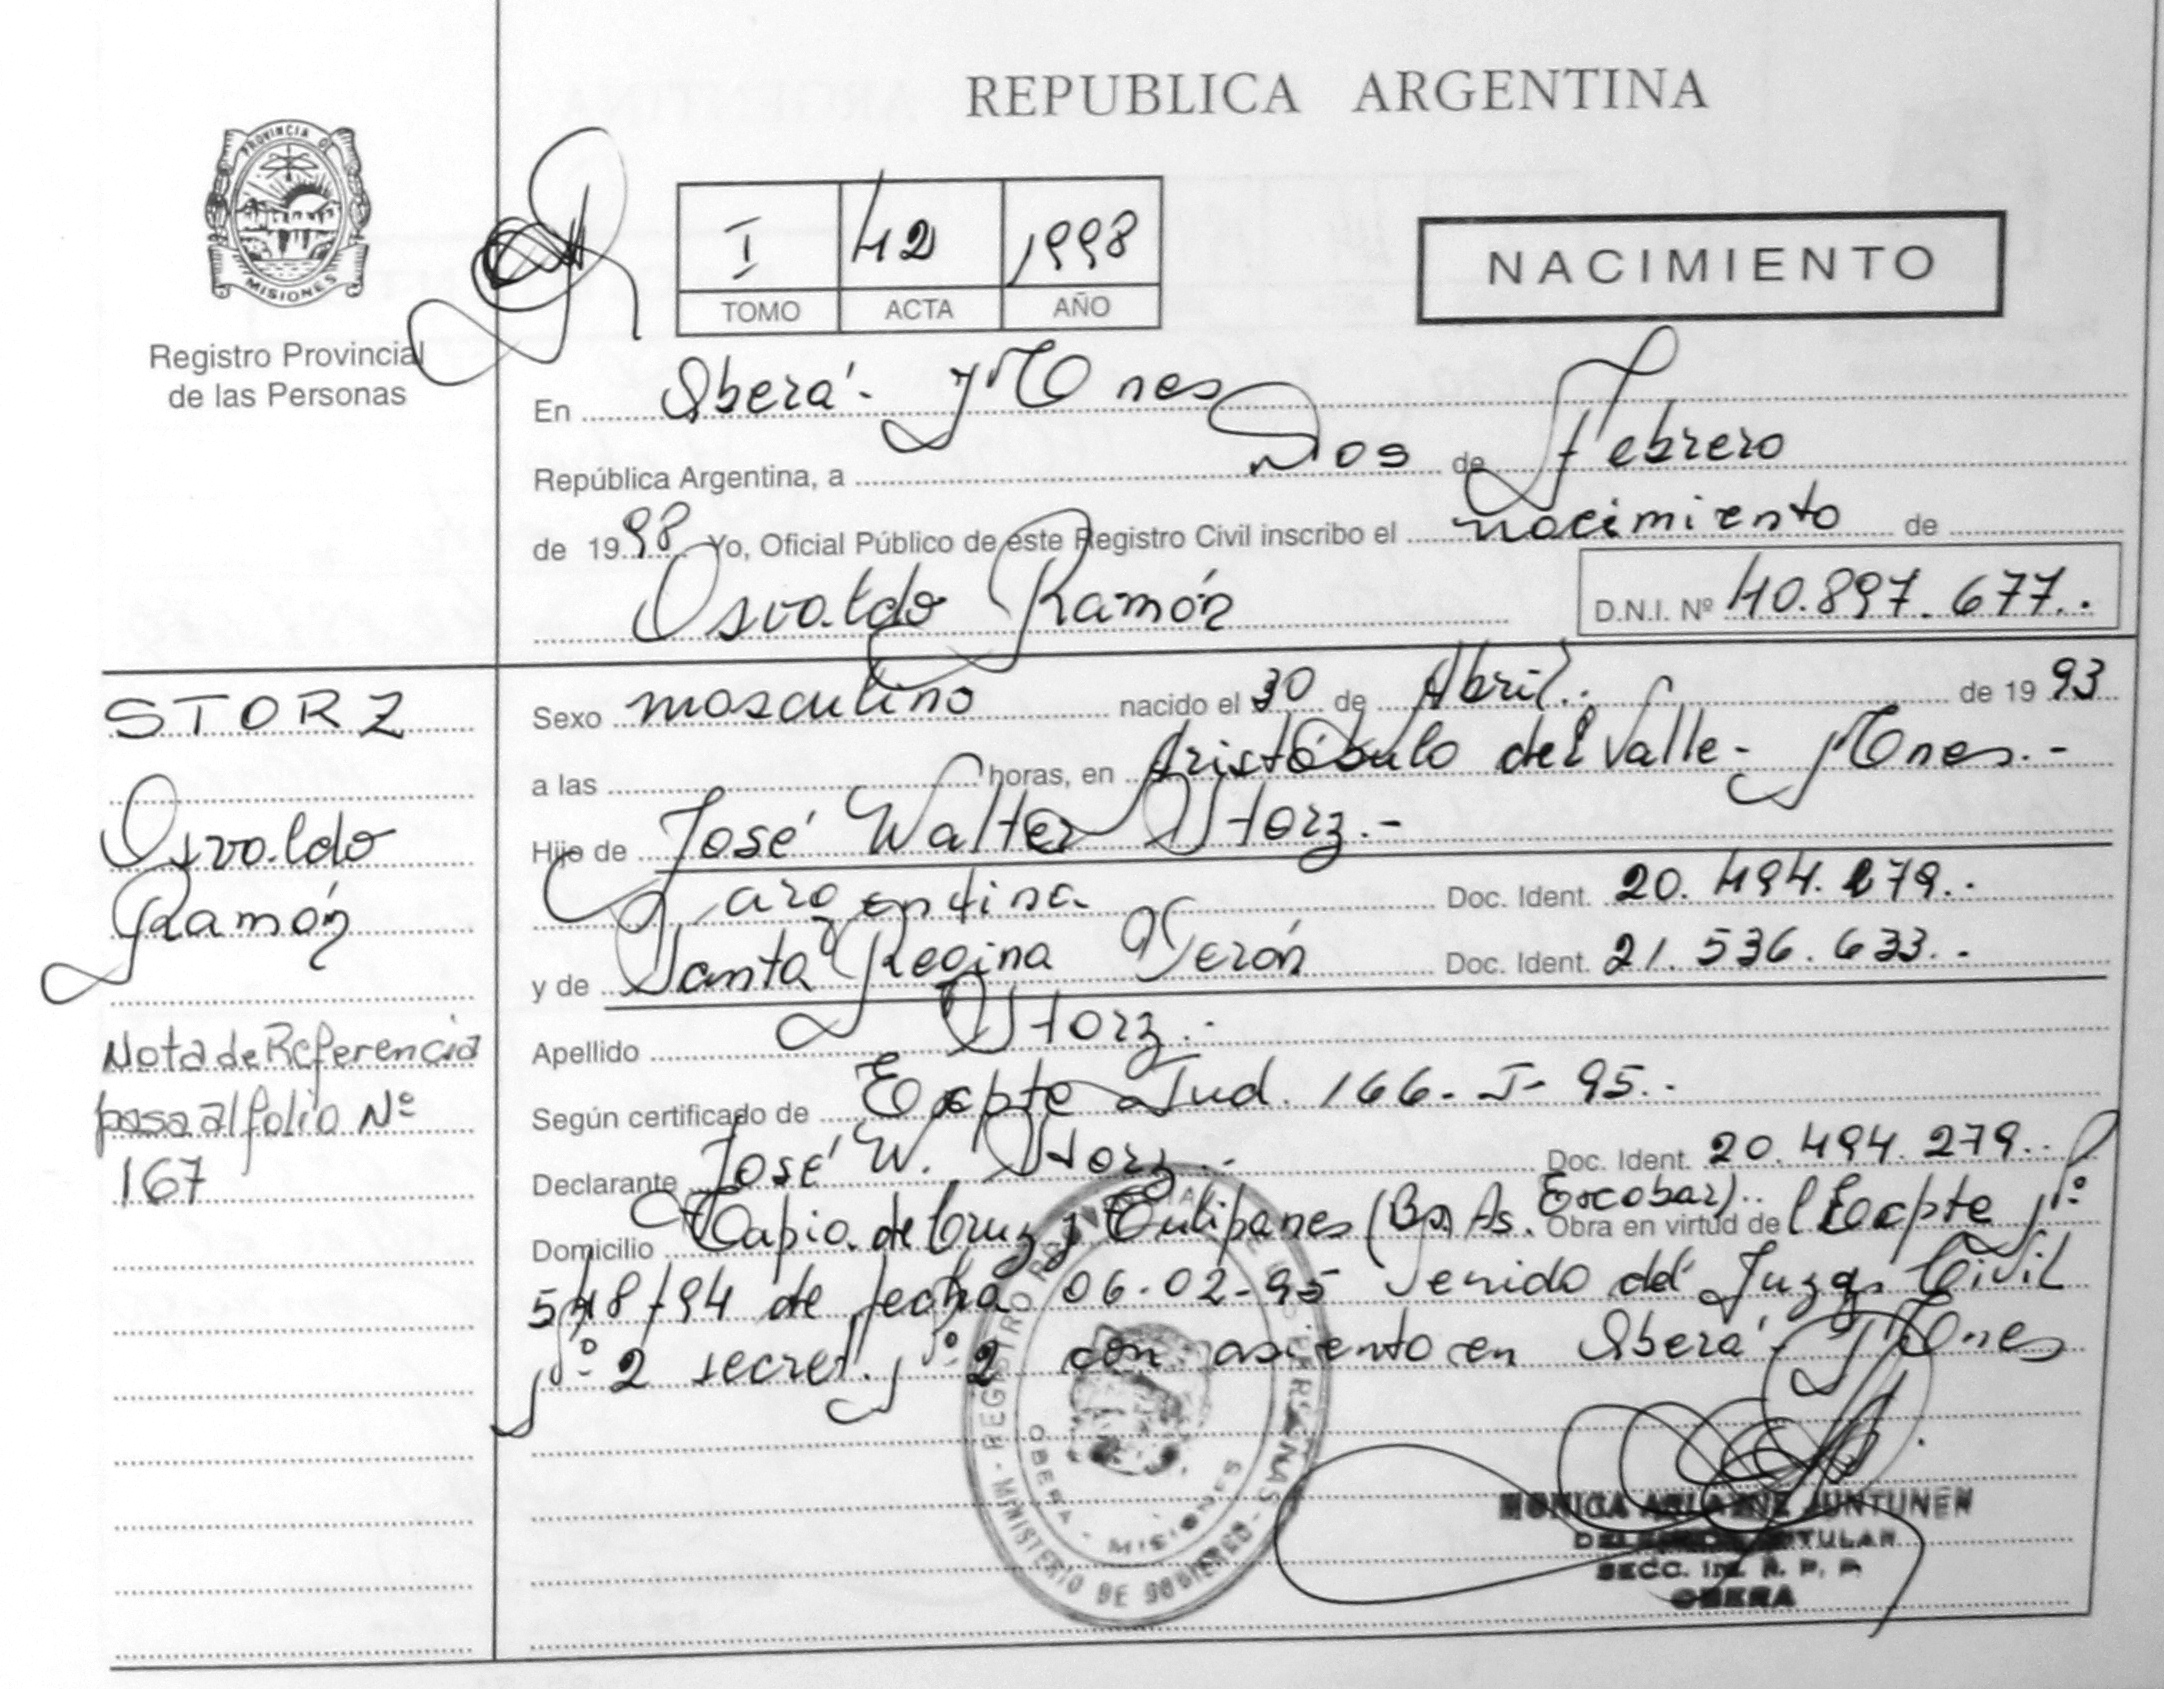 REPUBLICA ARGENTINA
PROVINCIA DE
MISIONES
Registro Provincial
de las Personas
I 42 1998
TOMO ACTA AÑO
NACIMIENTO
En Oberá - Mnes
República Argentina, a Dos de Febrero
de 1998 Yo, Oficial Público de este Registro Civil inscribo el nacimiento de
Osvaldo Ramón
D.N.I. Nº 40.897.677.
STORZ
Osvaldo
Ramón
Nota de Referencia
pasa al folio Nº
167
Sexo masculino nacido el 30 de Abril de 1993
a las horas, en Aristóbulo del Valle - Mnes.-
Hijo de José Walter Storz.-
argentina Doc. Ident. 20.494.279.-
y de Santa Regina Verón Doc. Ident. 21.536.633.-
Apellido Storz.-
Según certificado de Expte Jud. 166-I-95.-
Declarante José W. Storz.- Doc. Ident. 20.494.279.-
Domicilio Tapia de Cruz y Tulipanes (Bs. As. Escobar).. Obra en virtud del Expte Nº
548/94 de fecha 06-02-95 venido del Juzg. Civil
Nº 2 secret. Nº 2 con asiento en Oberá - Mnes
REGISTRO PROVINCIAL DE LAS PERSONAS - MINISTERIO DE GOBIERNO -
OBERA - MISIONES
MONICA JUNTUNEN
TITULAR
SECC. R. P. P.
OBERA